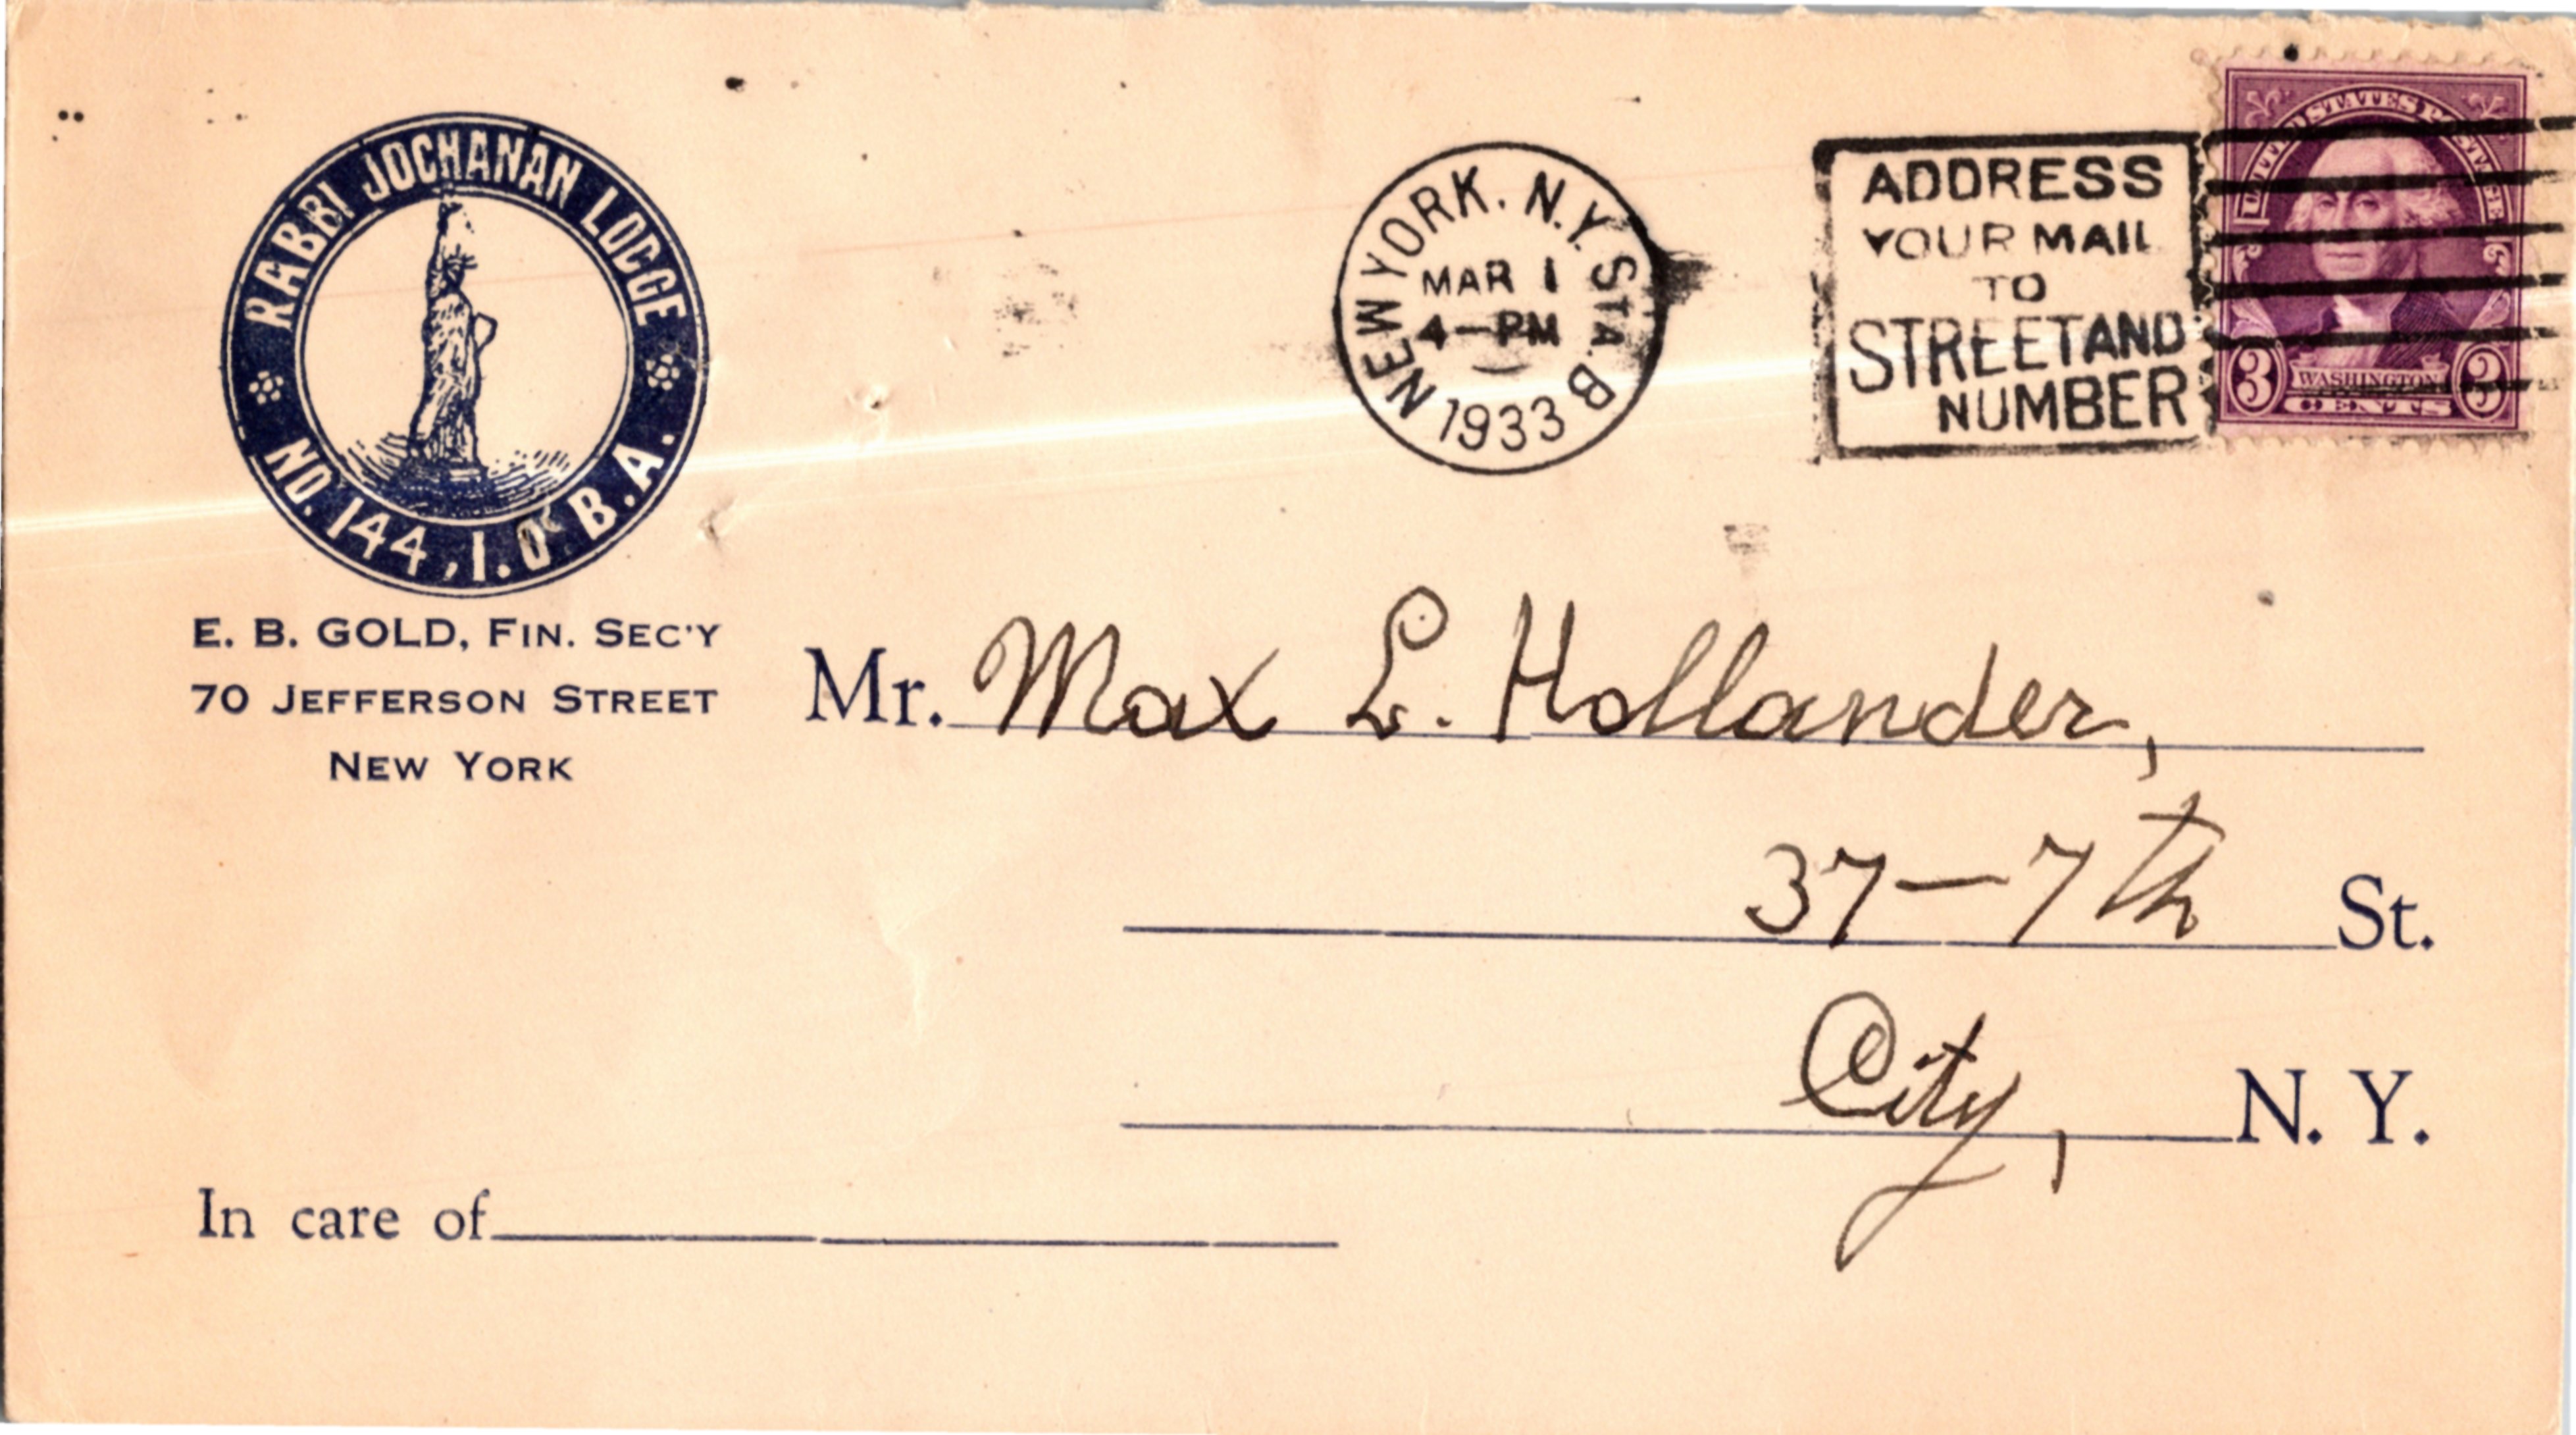 RABBI JOCHANAN LODGE
NO. 144, I. O. B. A.
E. B. GOLD, FIN. SEC'Y
70 JEFFERSON STREET
NEW YORK
NEW YORK, N.Y. STA. B
MAR 1
4—PM
1933
ADDRESS
YOUR MAIL
TO
STREET AND
NUMBER
UNITED STATES POSTAGE
WASHINGTON
3 CENTS 3
Mr. Max L. Hollander,
37—7th St.
City, N. Y.
In care of